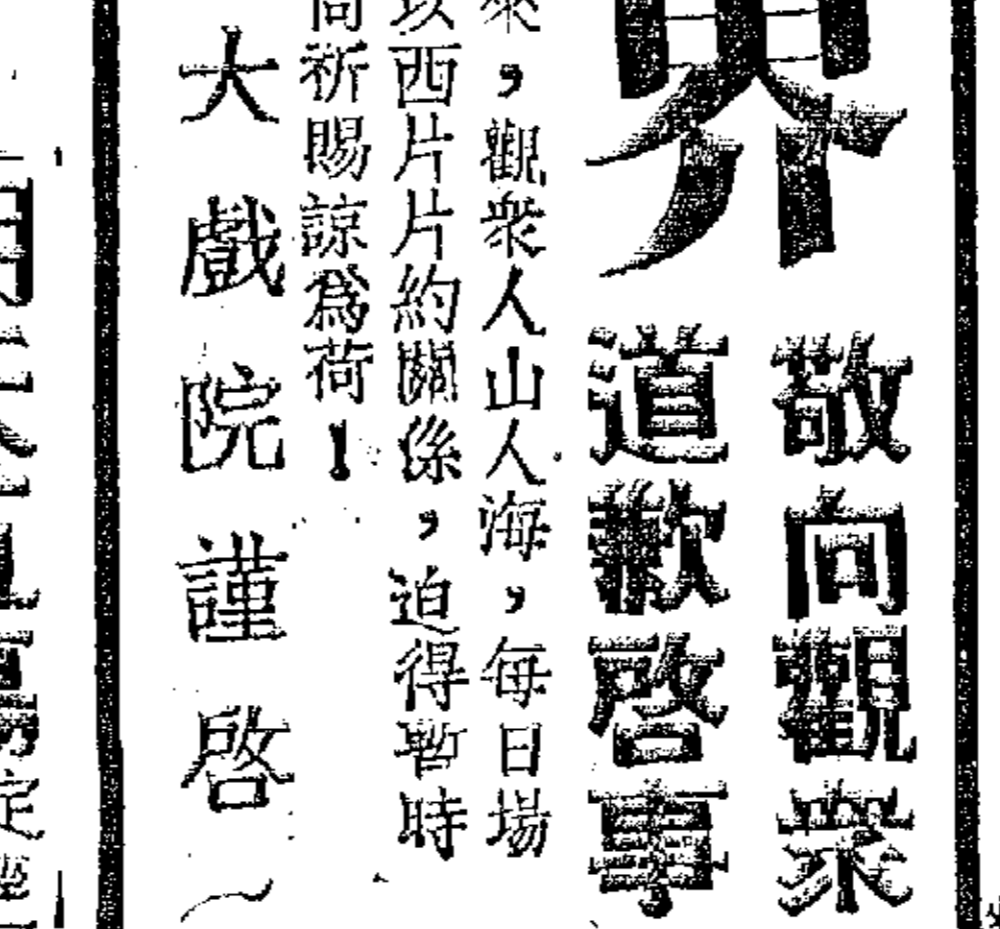 界
敬向觀眾
道歉啓事
來，觀衆人山人海，每日場
以西片片約關係，迫得暫時
尚祈賜諒爲荷！
大戲院謹啓